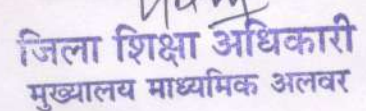 जिला शिक्षा अधिकारी
मुख्यालय माध्यमिक अलवर